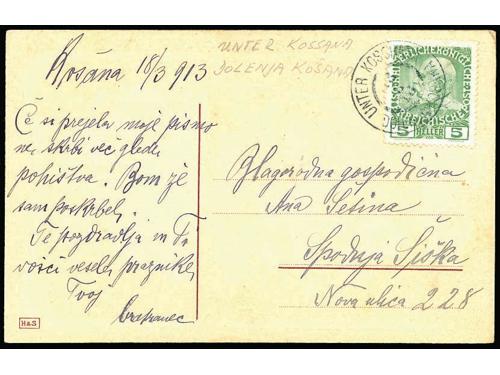 Košana 18/3 913
UNTER KOSSANA
DOLENJA KOŠANA
Če si prejela moje pismo
ne skrbi več glede
pohištva. Bom že
sam poskrbel.
Te pozdravlja in Ti
vošči vesele praznike
Tvoj
H&S
UNTER KOSSANA
5 HELLER 5
Blagorodna gospodična
Ana Setina
Spodnja Šiška
Nova ulica 228